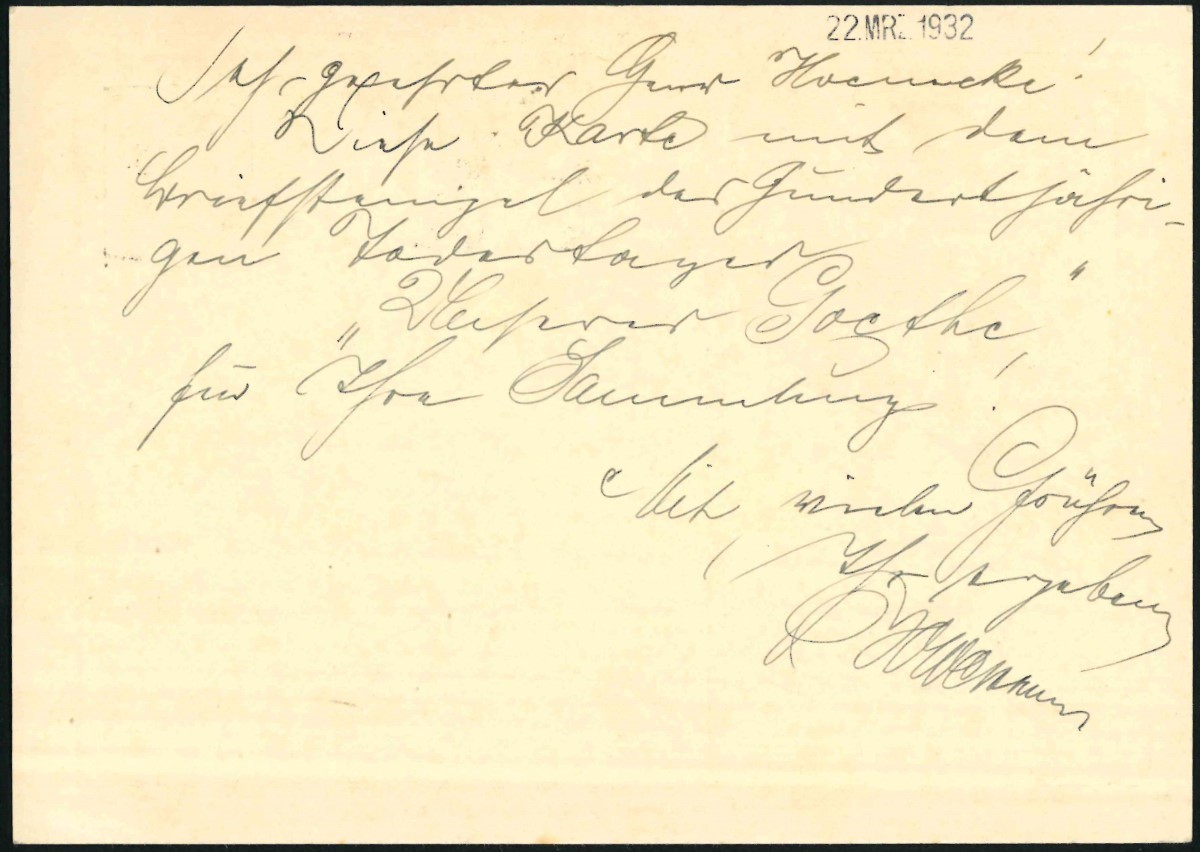 22. MRZ. 1932
Sehr geehrter Herr Hoenecke!
Diese Karte mit dem
Briefstempel des Hundertjähri-
gen Todestages
„Unseres Goethe"
für Ihre Sammlung.
Mit vielen Grüßen
Ihr ergebener